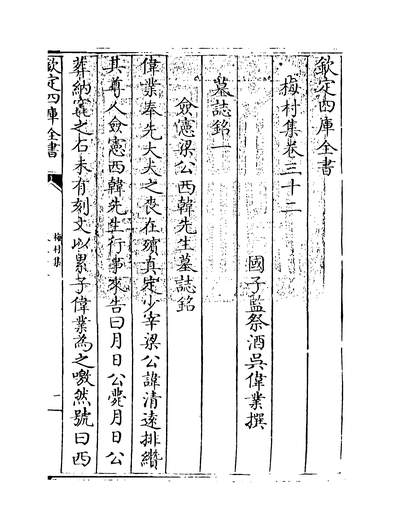 欽定四庫全書
梅村集卷三十二
國子監祭酒吳偉業撰
墓誌銘一
僉憲梁公西韓先生墓誌銘
偉業奉先大夫之喪在殯真定少宰梁公諱清遠排纘
其尊人僉憲西韓先生行事來告曰月日公薨月日公
葬納窆之石未有刻文以累子偉業為之噭然號曰西
欽定四庫全書
梅村集
一